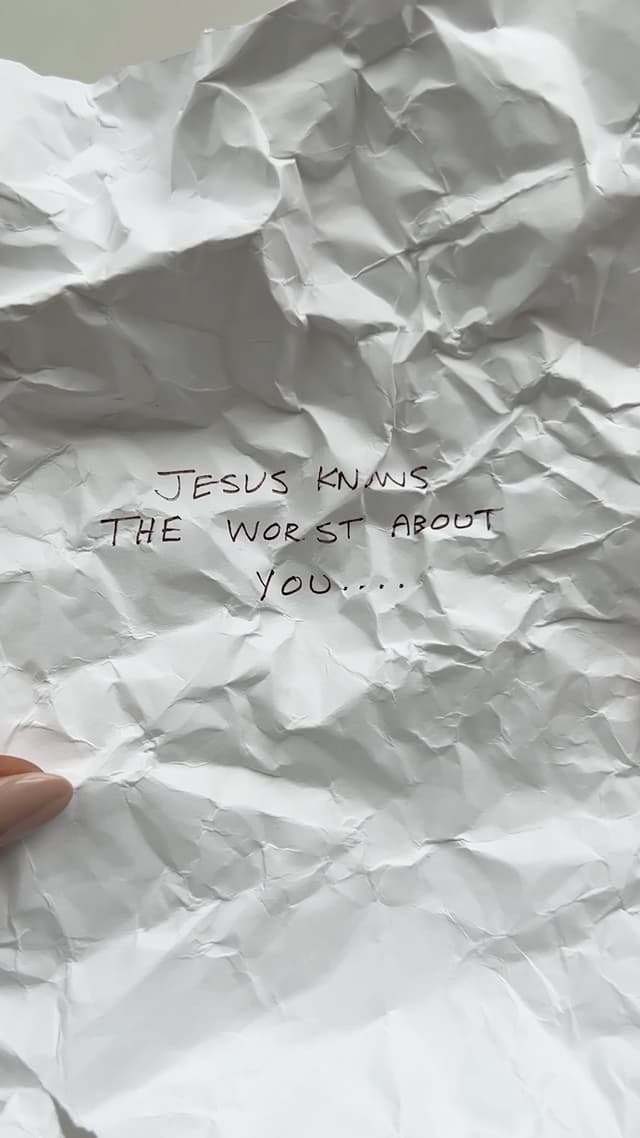 JESUS KNOWS
THE WORST ABOUT
YOU....